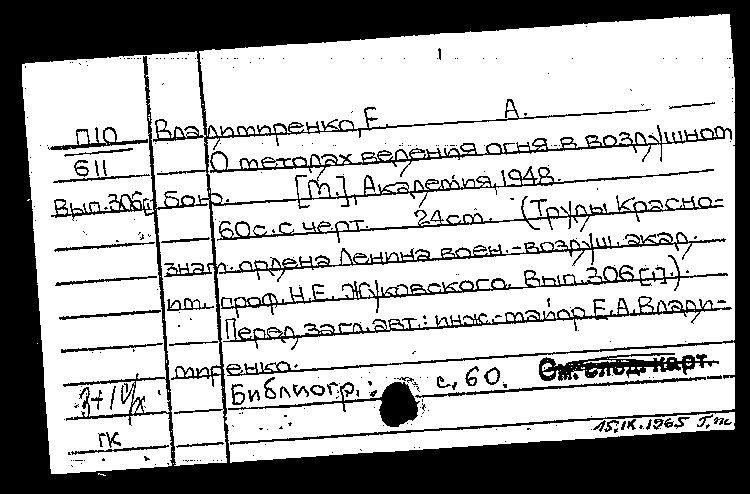 Владимиренко, Е. А.
П10
611
О методах ведения огня в воздушном
Вып.306[г]
бою. [М.], Академия, 1948.
60с. с черт. 24см. (Труды Красно-
знам. ордена Ленина воен.-воздуш. акад.
им. проф. Н.Е. Жуковского. Вып.306[г].).
Перед загл. авт.: инж.-майор Е.А. Влади-
миренко.
Библиогр.: с. 60. См. след. карт.
ГК
15.IX.1965